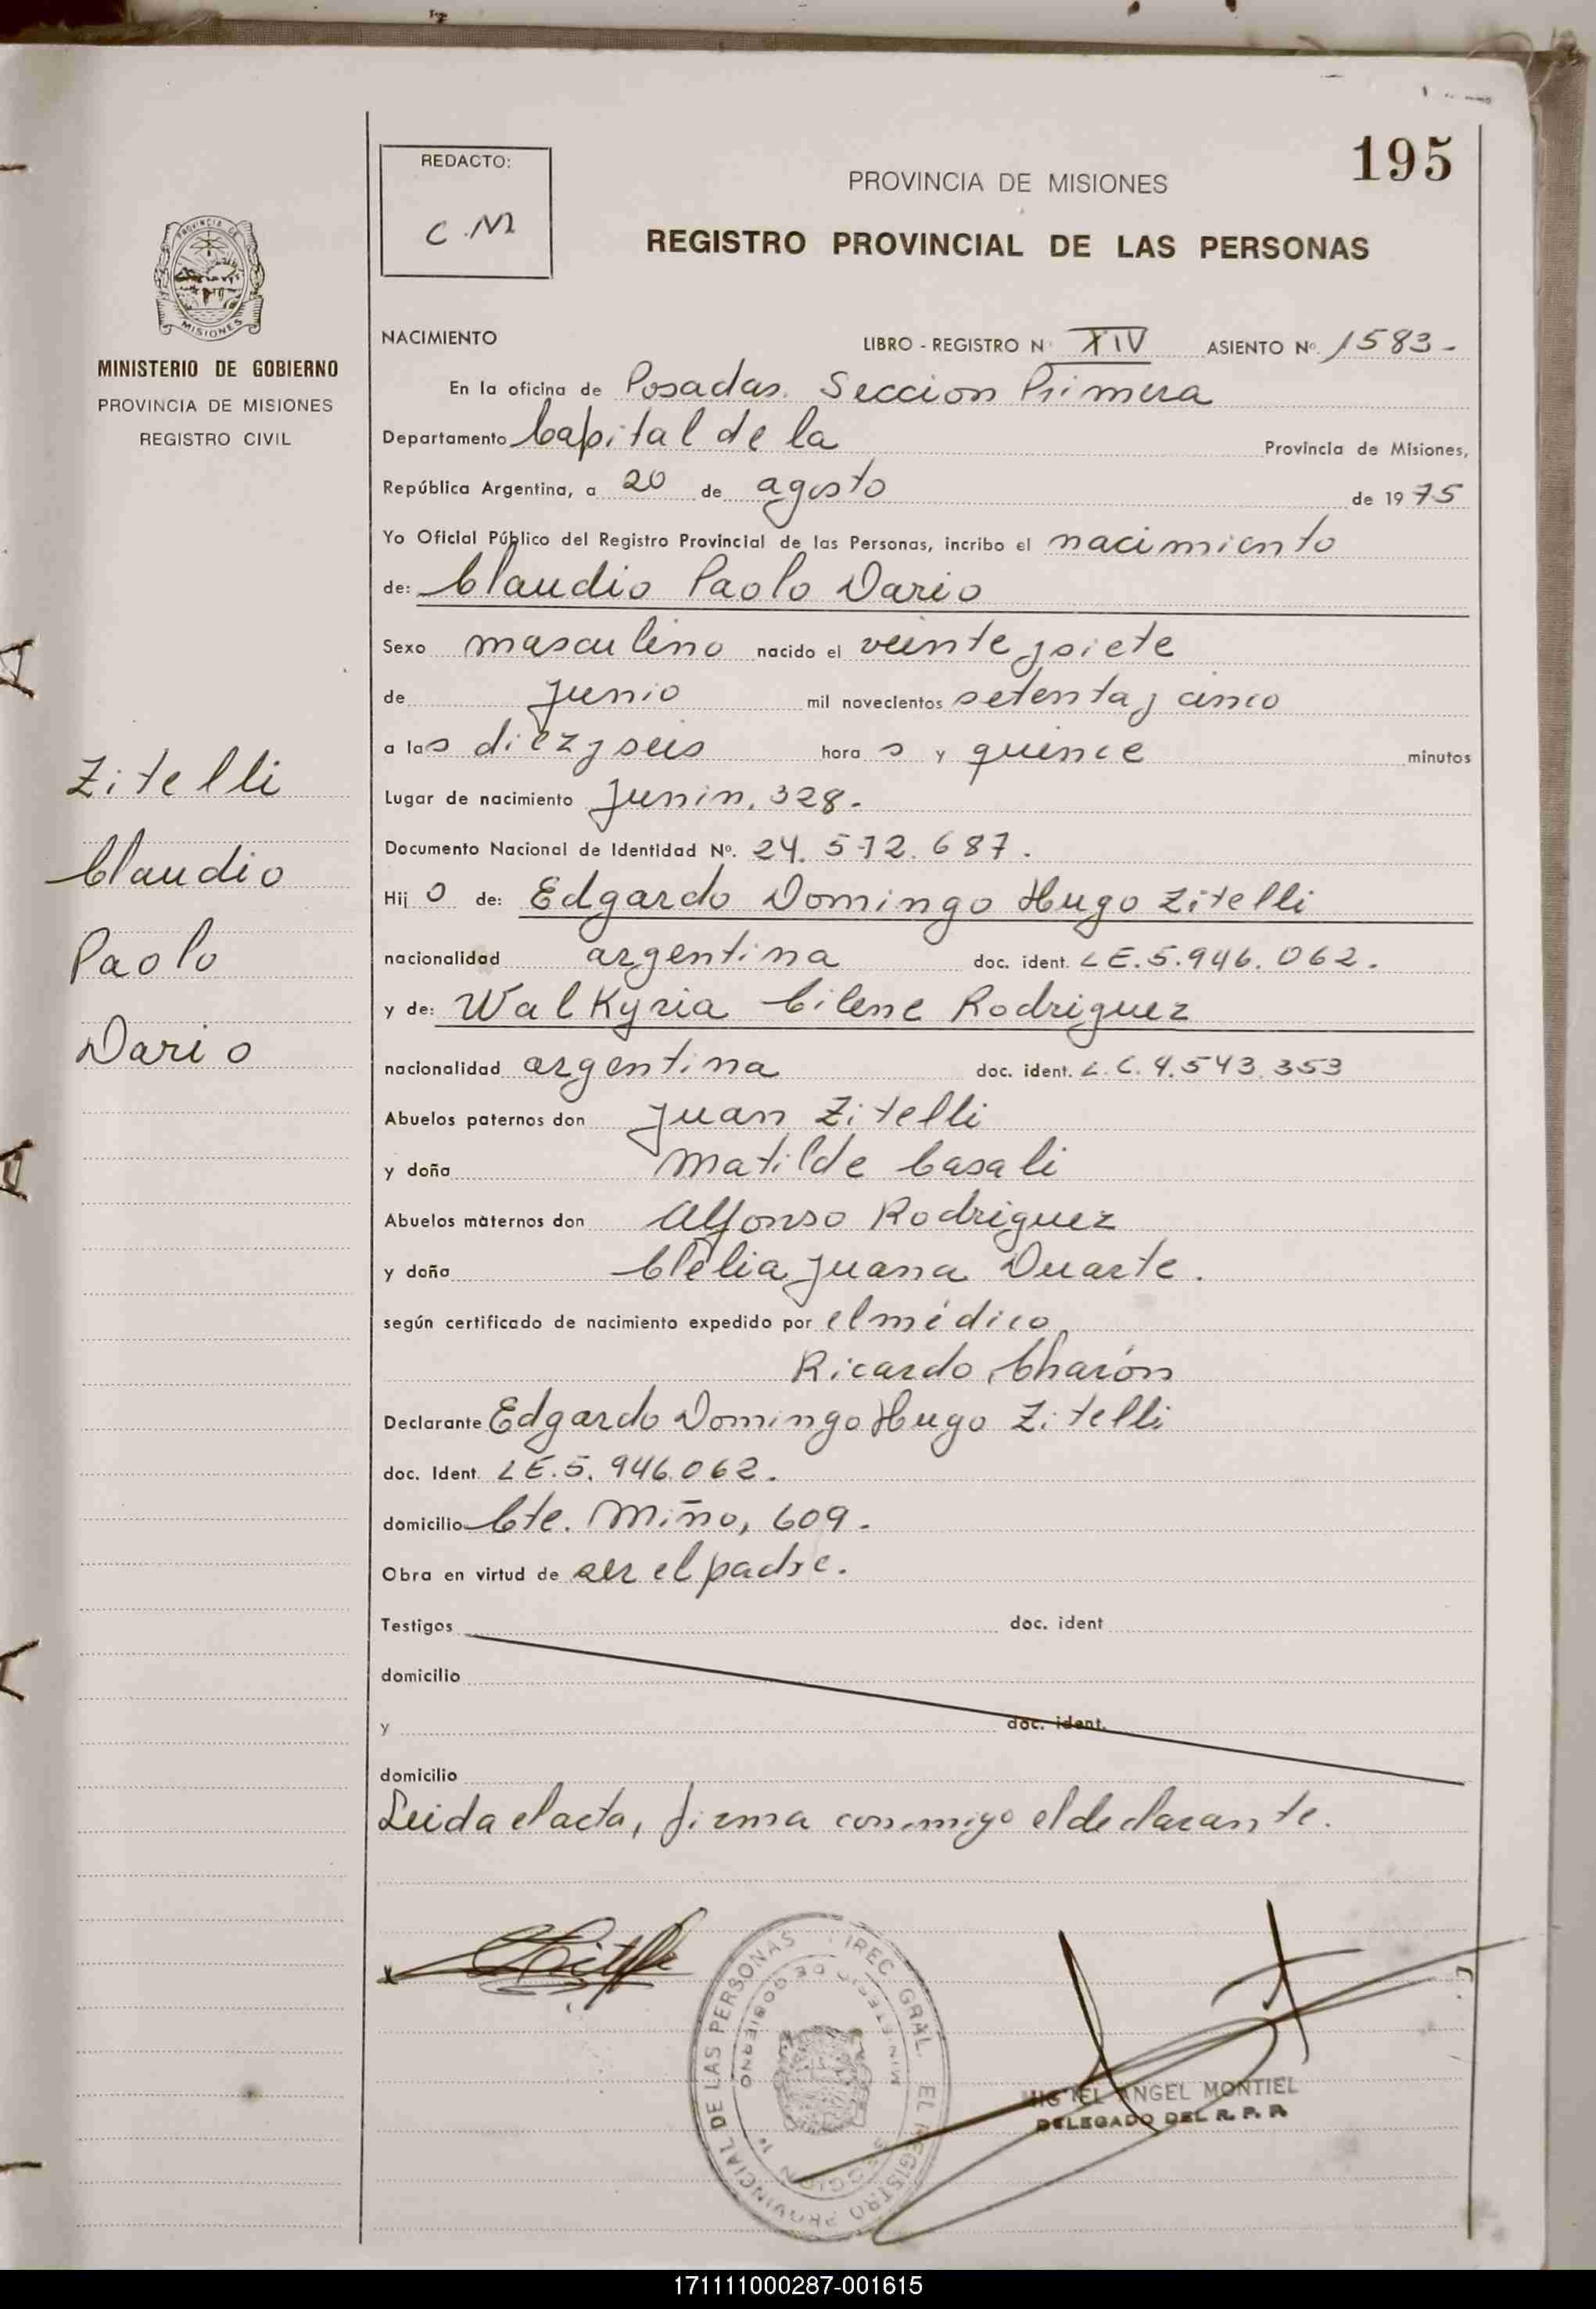 195
REDACTO:
C.M
PROVINCIA DE MISIONES
REGISTRO PROVINCIAL DE LAS PERSONAS
PROVINCIA DE
MISIONES
MINISTERIO DE GOBIERNO
PROVINCIA DE MISIONES
REGISTRO CIVIL
Zitelli
Claudio
Paolo
Dario
NACIMIENTO LIBRO - REGISTRO N XIV ASIENTO Nº. 1583-
En la oficina de Posadas. Seccion Primera
Departamento Capital de la Provincia de Misiones,
República Argentina, a 20 de agosto de 1975
Yo Oficial Público del Registro Provincial de las Personas, incribo el nacimiento
de: Claudio Paolo Dario
Sexo masculino nacido el veinte y siete
de junio mil novecientos setenta y cinco
a las diez y seis horas y quince minutos
Lugar de nacimiento Junin, 328.
Documento Nacional de Identidad Nº. 24.572.687.
Hijo de: Edgardo Domingo Hugo Zitelli
nacionalidad argentina doc. ident. LE.5.946.062.
y de: Walkyria Cilene Rodriguez
nacionalidad argentina doc. ident. L.C.4.543.353
Abuelos paternos don Juan Zitelli
y doña Matilde Casali
Abuelos maternos don Alfonso Rodriguez
y doña Clelia Juana Duarte.
según certificado de nacimiento expedido por el médico
Ricardo Charón
Declarante Edgardo Domingo Hugo Zitelli
doc. Ident. LE.5.946.062.
domicilio Cte. Miño, 609.
Obra en virtud de ser el padre.
Testigos doc. ident
domicilio
y doc. ident.
domicilio
Leida el acta, firma conmigo el declarante.
IREC. GRAL. EL REGISTRO PROVINCIAL DE LAS PERSONAS
MINISTERIO DE GOBIERNO
MIGUEL ANGEL MONTIEL
DELEGADO DEL R. P. P.
171111000287-001615